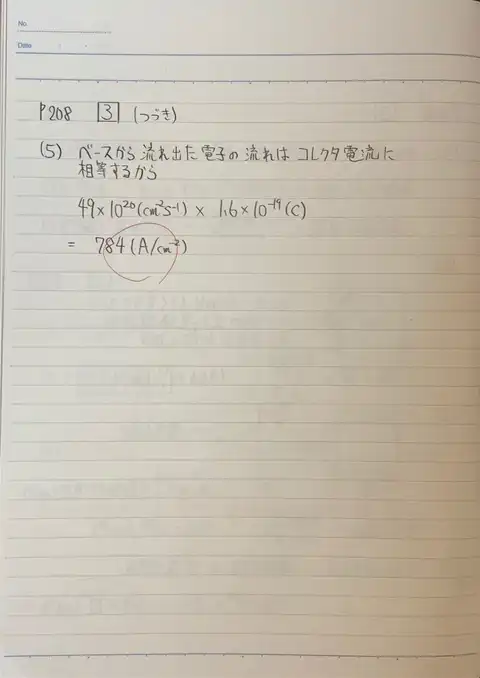 No.
Date
P208 3 (つづき)
(5) ベースから流れ出た電子の流れはコレクタ電流に
相等するから
49×10²⁰(cm²s⁻¹) × 1.6×10⁻¹⁹(C)
= 784(A/cm⁻²)